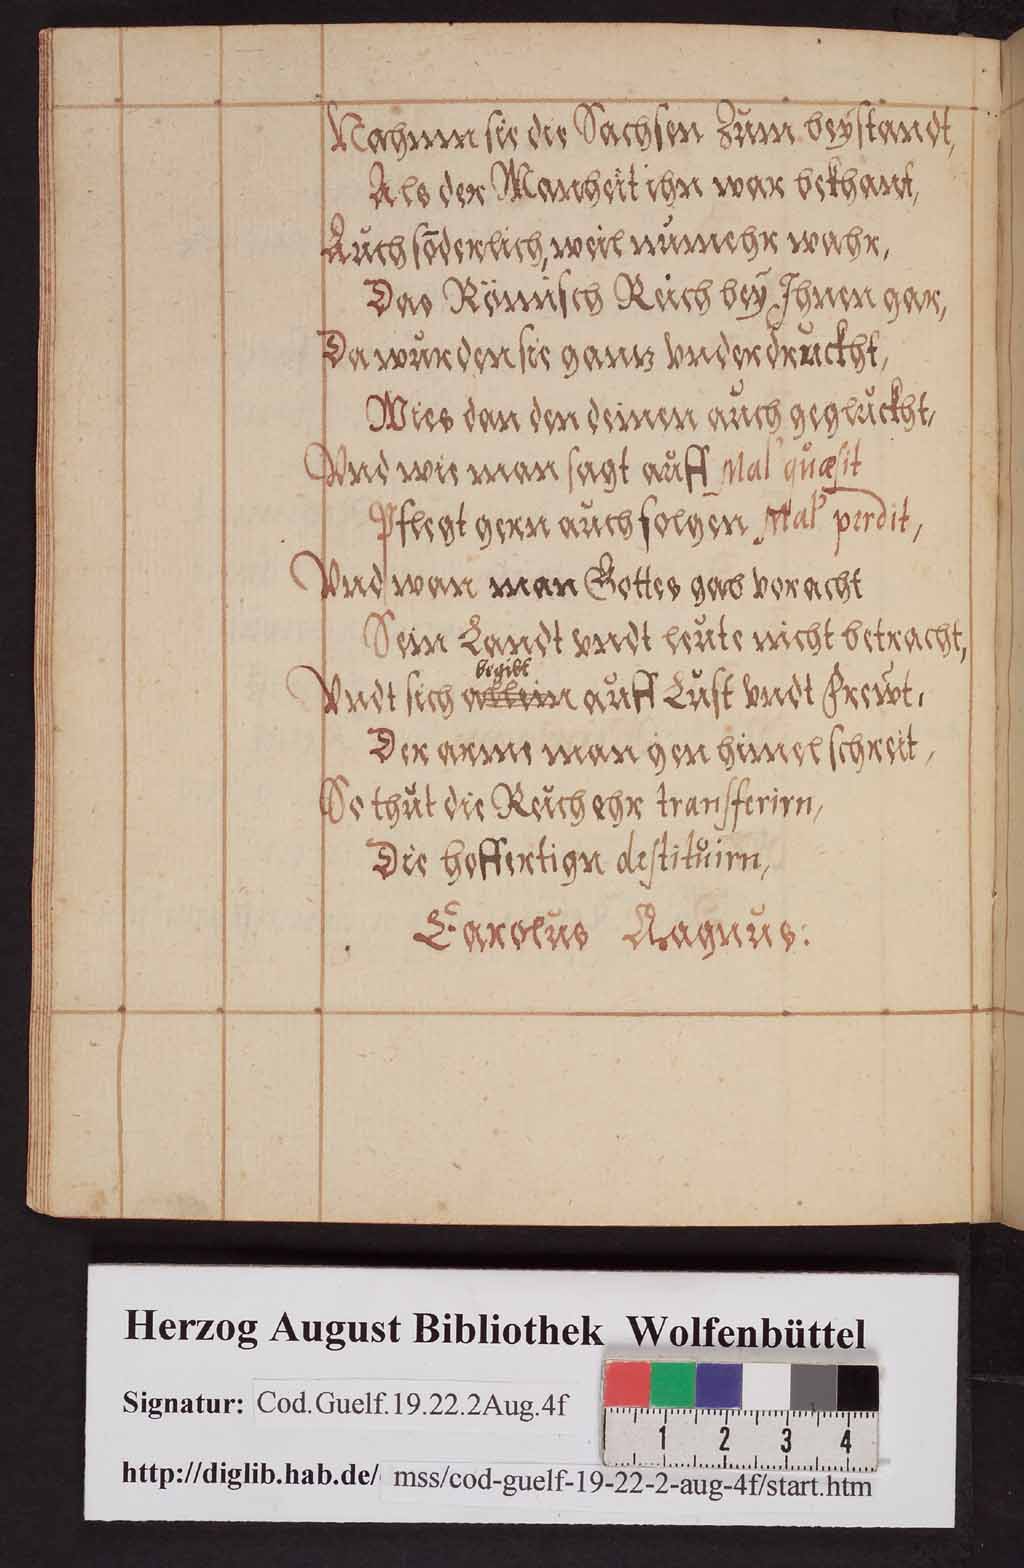 Nahmn sie die Sachsen zum beystandt,
Als der Manheit ihn war bekhant,
Auch sōderlich, weil nūmehr wahr,
Das Römisch Reich bey Ihnen gar,
Da wurden sie gantz vnderdruckht,
Wies dan den deinen auch gegluckht,
Vnd wie man sagt auff Mal' quæsit
Pflegt gern auch folgen Mal' perdit,
Vnd wan man Gottes gab voracht
Sein Landt vndt leute nicht betracht,
begibt
Vndt sich allein auff Lust vndt frewt,
Der arme man gen himel schreit,
So thut die Reich ehr transferirn,
Die hoffertign destituirn,
Carolus Magnus:
Herzog August Bibliothek Wolfenbüttel
Signatur: Cod.Guelf.19.22.2Aug.4f
1 2 3 4
http://diglib.hab.de/ mss/cod-guelf-19-22-2-aug-4f/start.htm